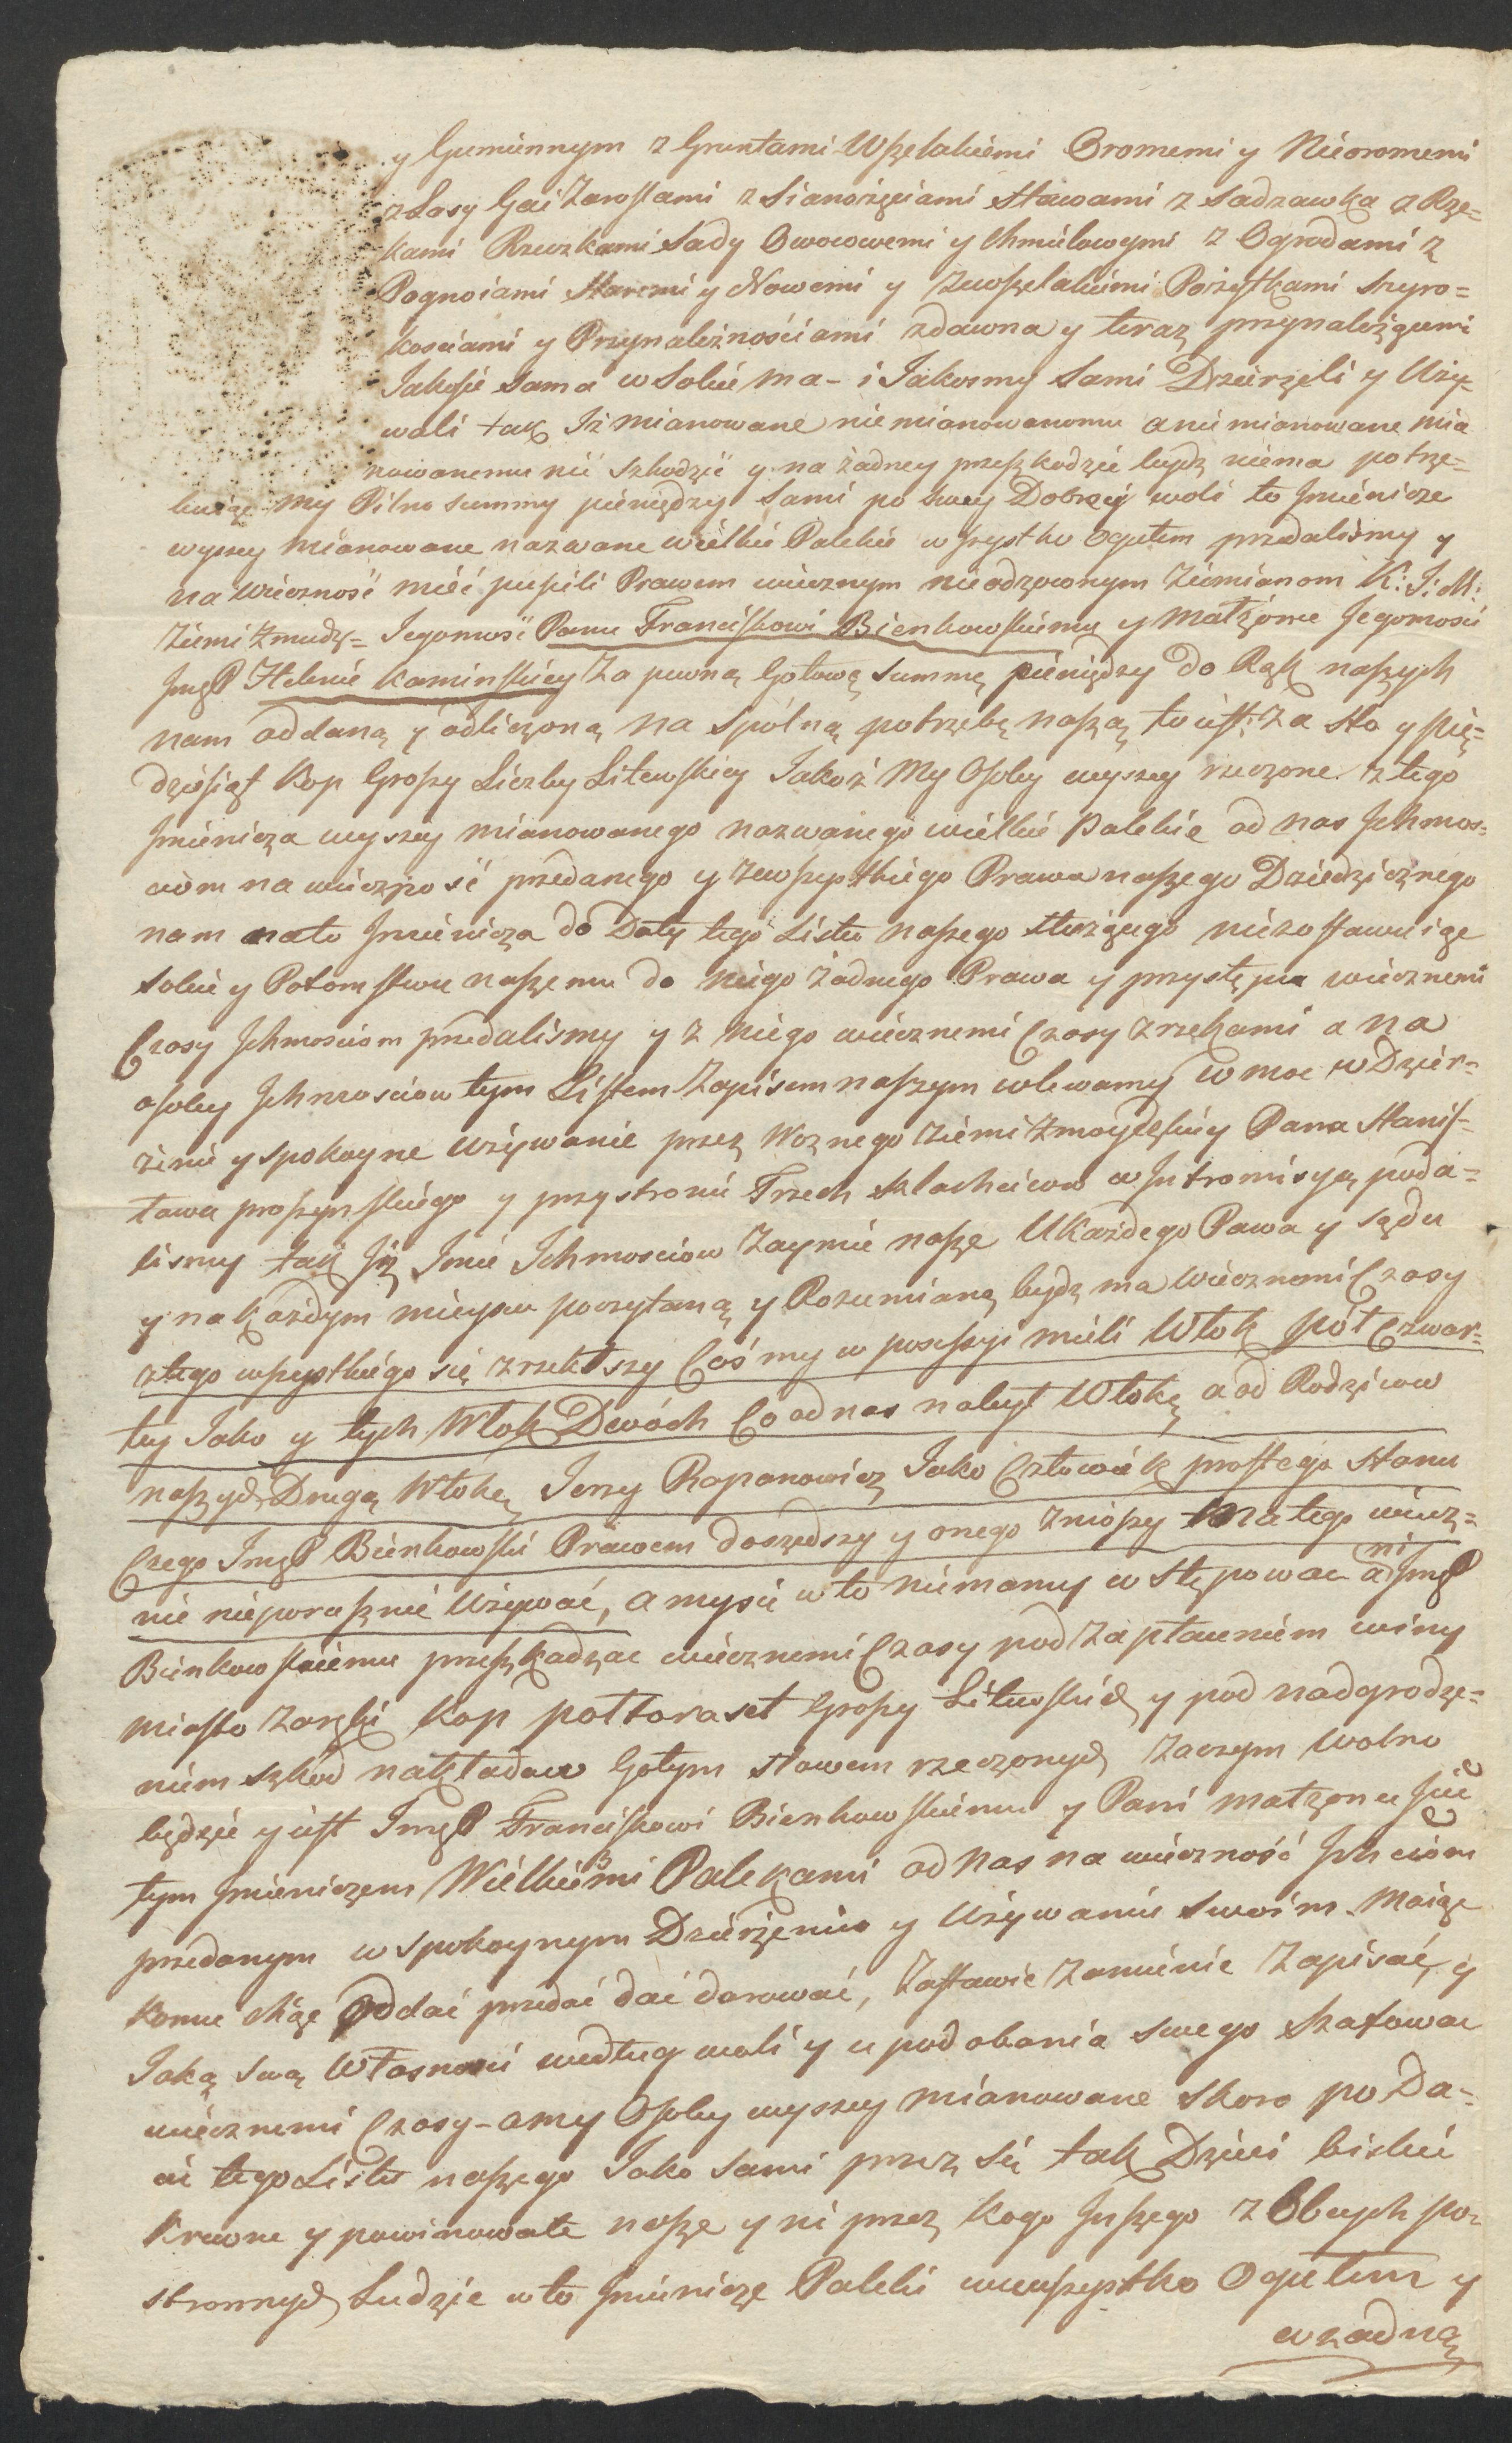 y Gumiennym z Gruntami Wszelakiemi Oromemi y Nieoromemi
z Lasy Gai Zaroslami z Sianożęciami Stawami z Sadzawką z Rze=
kami Rzeczkami Sady Owocowemi y Chmielowymi z Ogrodami z
Pognoiami Staremi y Nowemi y zewszelakiemi Pożytkami Szyro=
kosciami y Przynależnościami zdawna y teraz przynależącemi
Jakosie Sama w Sobie ma - i Jakosmy Sami Dzierżeli y Uży=
wali tak Iż mianowane niemianowanemu a niemianowane mia
nowanemu nić szkodzić y na żadney przeszkodzie bydz niema potrze=
buiąc my Pilno summy pieniędzy Sami po swey Dobrey woli to Imienicze
wyszey mianowane nazwane Wielkie Palekie wszystko Ogułem przedaliśmy y
na wieczność mieć puscili Prawem wiecznym nieodzownym Ziemianom K: J: M:
Ziemi Zmudz= Jegomość Panu Franciszkowi Bienkowskiemu y Małżonce Jegomosci
ImęP Helenie Kaminskiey Za pewną Gotową Summę pieniędzy do Rąk naszych
nam oddaną y odliczoną na spólną potrzebę naszą to iest: za sto y pię=
dziesiąt Kop Groszy Liczby Litewskiey Jakoż My Osoby wyszey rzeczone z tego
Imienicza wyszey mianowanego nazwanego wielkie Palekie od nas Ichmos=
ciom na wieczność przedanego y zewszystkiego Prawa naszego Dziedzicznego
nam na to Imienicza do Daty tego Listu naszego służącego niezostawuiąc
Sobie y Potomstwu naszemu do niego żadnego Prawa y przystępu wiecznemi
Czasy Ichmosciom przedalismy y z niego wiecznemi Czasy zrzekami a na
osoby Ichmosciow tym Listem Zapisem naszym wlewamy w moc w Dzier=
żenie y spokoyne używanie przez Woznego Ziemi Zmoydzkiey Pana Stanis=
ława proszynskiego y przy stronie Trzech szlachcicow w Intromisyą poda=
lismy tak Iż Imie Ichmosciow Zaymie nasze Ukażdego Pawa y Sądu
y na każdym mieyscu poczytaną y Rozumianą bydz ma wiecznemi Czasy
ztego wszystkiego się zrzekłszy Cośmy w possessyi mieli Włok pół Czwar=
tey Jako y tych Włok Dwóch Co od nas nabył Włokę a od Rodzicow
naszych Drugą Włokę Jerzy Rapanowicz Jako Człowiek prostego Stanu
Czego ImęP Bienkowski Prawem doszedszy y onego zniószy ma tego wiecz=
nie nieporusznie Używać, a mysie w to niemamy wstępowac ani ImęP
Bienkowskiemu przeszkadzac wiecznemi Czasy pod Zapłaceniem winy
miasto Zaręki Kop połtoraset Groszy Litewskich y pod nadgrodze=
niem szkod nakładow Gołym słowem rzeczonych Zaczym wolno
będzie y iest ImęP Franciszkowi Bienkowskiemu y Pani małżonce Jie
tym Imieniczem Wielkiemi Palekami od nas na wieczność Ichciom
przedanym w spokoynym Dzierżeniu y Używaniu swoim Maiąc
komu chcąc Oddać przedać dać darować, Zastawic Zamienic Zapisać, y
Jaką swą Własnosci według woli y upodobania swego szafowac
wiecznemi Czasy - amy Osoby wyszey mianowane Skoro po Da=
cie tego Listu naszego Jako Sami przez się tak Dzieci bliskie
krewne y powinowate nasze y ni przez kogo Inszego z Obcych po=
stronnych Ludzie w to Imienicze Paleki wewszystko Ogułem y
w żadną